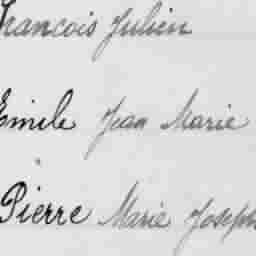 François Julien
Emile Jean Marie
Pierre Marie Joseph